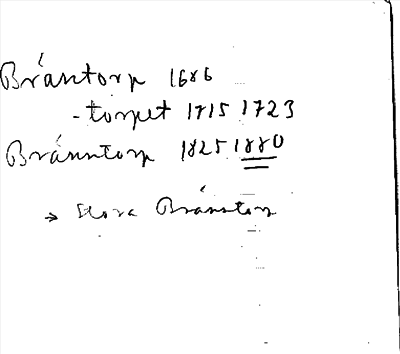 Bránntorp 1686
-torpet 1715 1723
Bránntorp 1825 1880
→ Stora Bránntorp